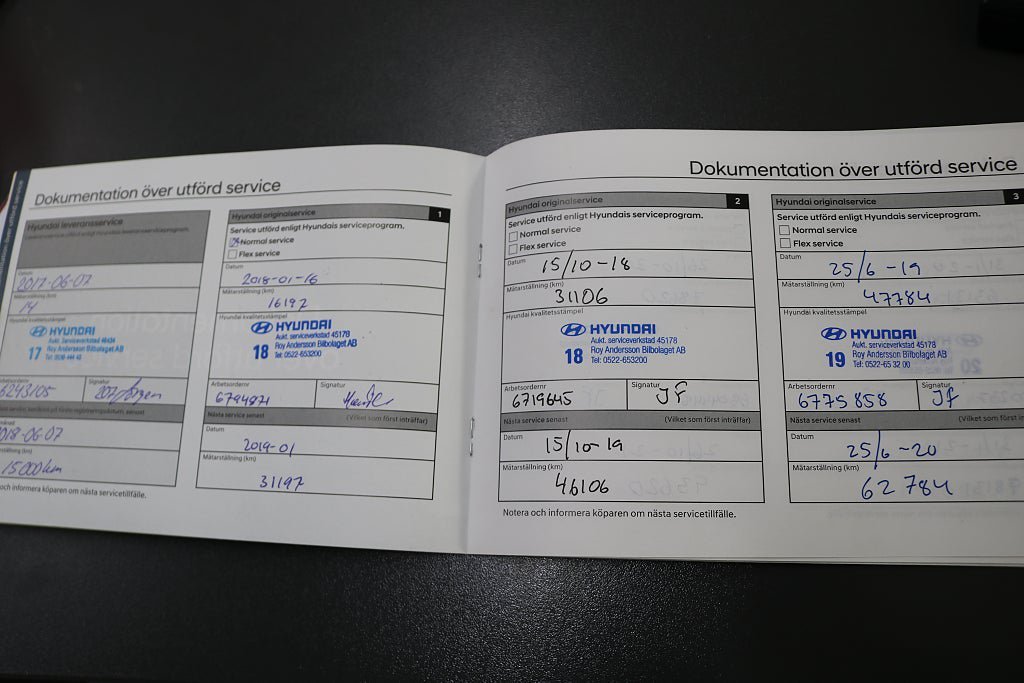 Dokumentation över utförd service
Hyundai leveransservice
Datum
2017-06-07
Mätarställning (km)
14
Hyundai kvalitetsstämpel
HYUNDAI
17
Arbetsordernr
6243105
Signatur
2018-06-07
15 000 km
och informera köparen om nästa servicetillfälle.
Hyundai originalservice 1
Service utförd enligt Hyundais serviceprogram.
Normal service
Flex service
Datum
2018-01-16
Mätarställning (km)
16197
Hyundai kvalitetsstämpel
HYUNDAI
Aukt. serviceverkstad 45178
18 Roy Andersson Bilbolaget AB
Tel: 0522-653200
Arbetsordernr
Signatur
Nästa service senast (Vilket som först inträffar)
Datum
2019-01
Mätarställning (km)
31197
Dokumentation över utförd service
Hyundai originalservice 2
Service utförd enligt Hyundais serviceprogram.
Normal service
Flex service
Datum
15/10-18
Mätarställning (km)
31106
Hyundai kvalitetsstämpel
HYUNDAI
Aukt. serviceverkstad 45178
18 Roy Andersson Bilbolaget AB
Tel: 0522-653200
Arbetsordernr
6719645
Signatur
JF
Nästa service senast (Vilket som först inträffar)
Datum
15/10-19
Mätarställning (km)
46106
Notera och informera köparen om nästa servicetillfälle.
Hyundai originalservice 3
Service utförd enligt Hyundais serviceprogram.
Normal service
Flex service
Datum
25/6-19
Mätarställning (km)
47784
Hyundai kvalitetsstämpel
HYUNDAI
Aukt. serviceverkstad 45178
19 Roy Andersson Bilbolaget AB
Tel: 0522-65 32 00
Arbetsordernr
6775858
Signatur
JF
Nästa service senast (Vilket som först inträffar)
Datum
25/6-20
Mätarställning (km)
62784